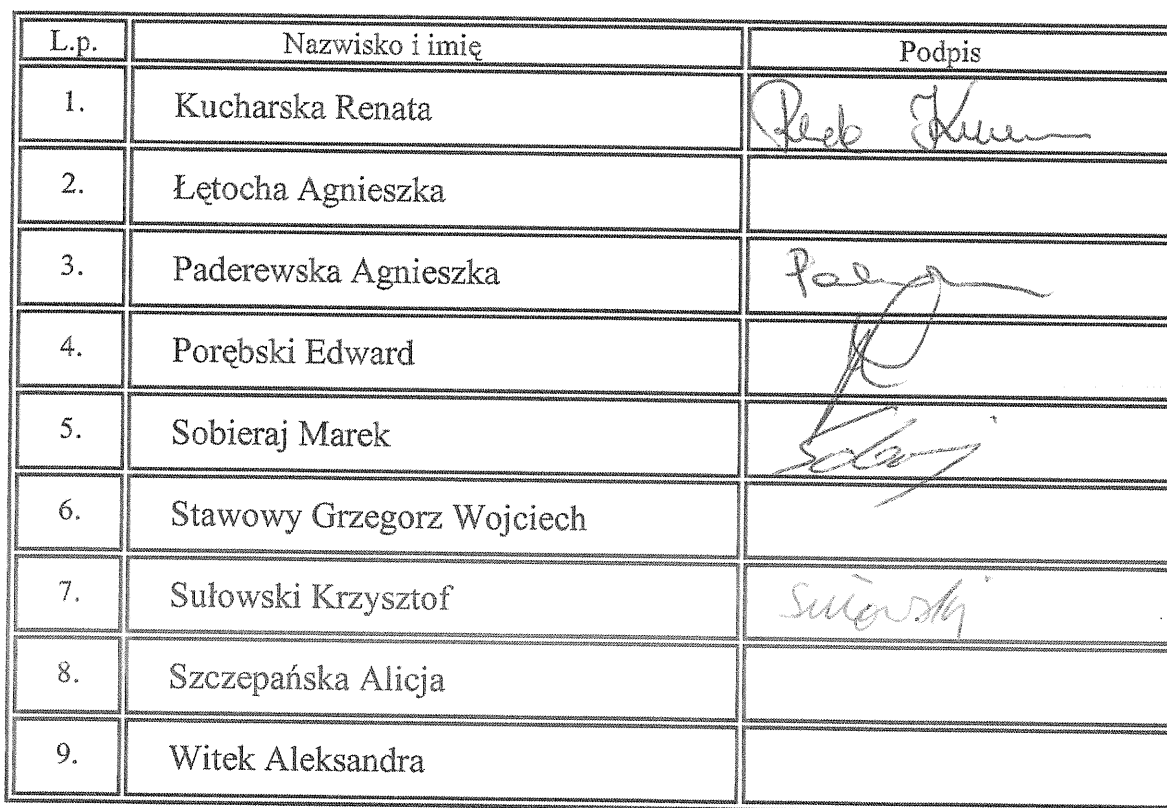 L.p. Nazwisko i imię Podpis
1. Kucharska Renata
2. Łętocha Agnieszka
3. Paderewska Agnieszka
4. Porębski Edward
5. Sobieraj Marek
6. Stawowy Grzegorz Wojciech
7. Sułowski Krzysztof Sułowski
8. Szczepańska Alicja
9. Witek Aleksandra